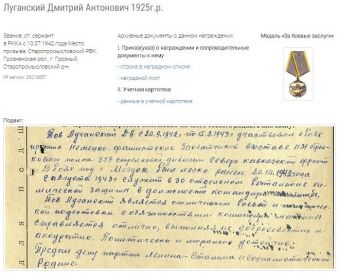 Луганский Дмитрий Антонович 1925г.р.
Звание: ст. сержант
в РККА с 10.07.1942 года Место
призыва: Старопромысловский РВК,
Грозненская обл., г. Грозный,
Старопромысловский р-н
№ записи: 28218657
Архивные документы о данном награждении:
I. Приказ(указ) о награждении и сопроводительные
документы к нему
- строка в наградном списке
- наградной лист
II. Учетная картотека
- данные в учетной картотеке
Медаль «За боевые заслуги»
Подвиг:
Тов Луганский Д.А с 20.9.1942г по 15.2.1943г участвовал в боях
против Немецко-фашистских захватчиков в составе 1131 стрел
кового полка 337 стрелковой дивизии Северо кавказского фронта
В боях под г. Моздок был легко ранен 20.10.1942 года
С августа 1943г служит в 30 отдельном батальоне хи
мической защиты в должности командира
Тов Луганский является отличником боевой и
ческой подготовки с обязанностями
справляется отлично, выполняя их добросовестно и
аккуратно. Политически и морально устойчив.
Предан делу партии Ленина-Сталина и социалистической
Родине.
для под